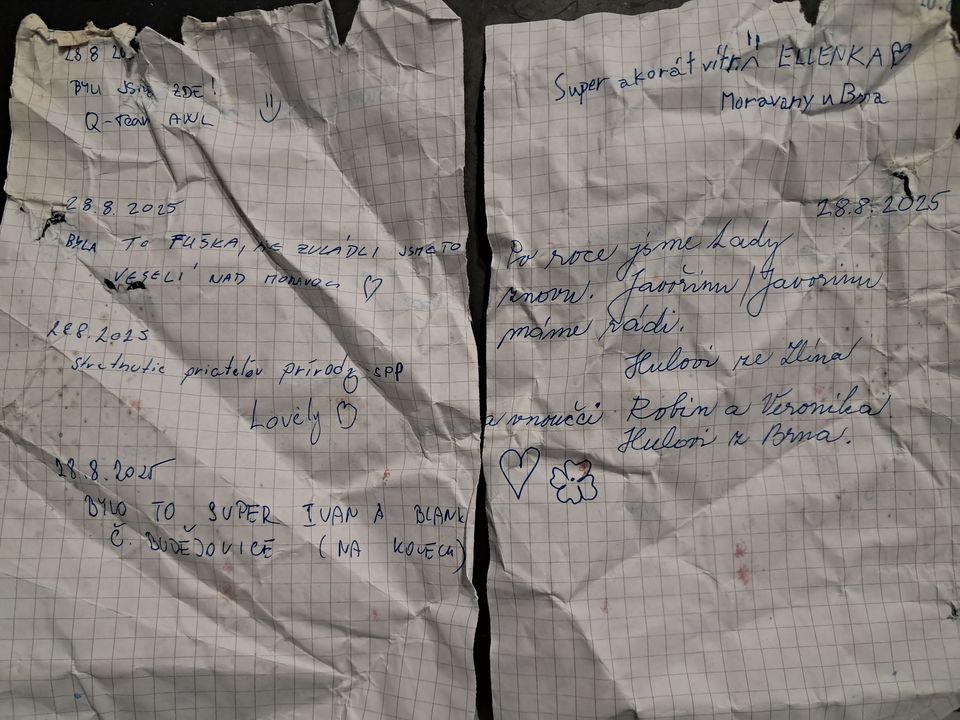 28.8.20
BYLI JSME ZDE!
Q-team AWL
28.8.2025
BYLA TO FUŠKA, ZVLÁDLI JSME TO
VESELÍ NAD MORAVOU
28.8.2025
Stretnutie priateľov prírody SPP
Lovely
28.8.2025
BYLO TO SUPER IVAN A BLANK
Č. BUDĚJOVICE (NA KOLECH)
20.
Super akorát vítr ELLENKA
Moravany u Brna
28.8.2025
Po roce jsme tady
znovu. Javořinu / Javorinu
máme rádi.
Hulovi ze Zlína
a vnoučci Robin a Veronika
Hulovi z Brna.